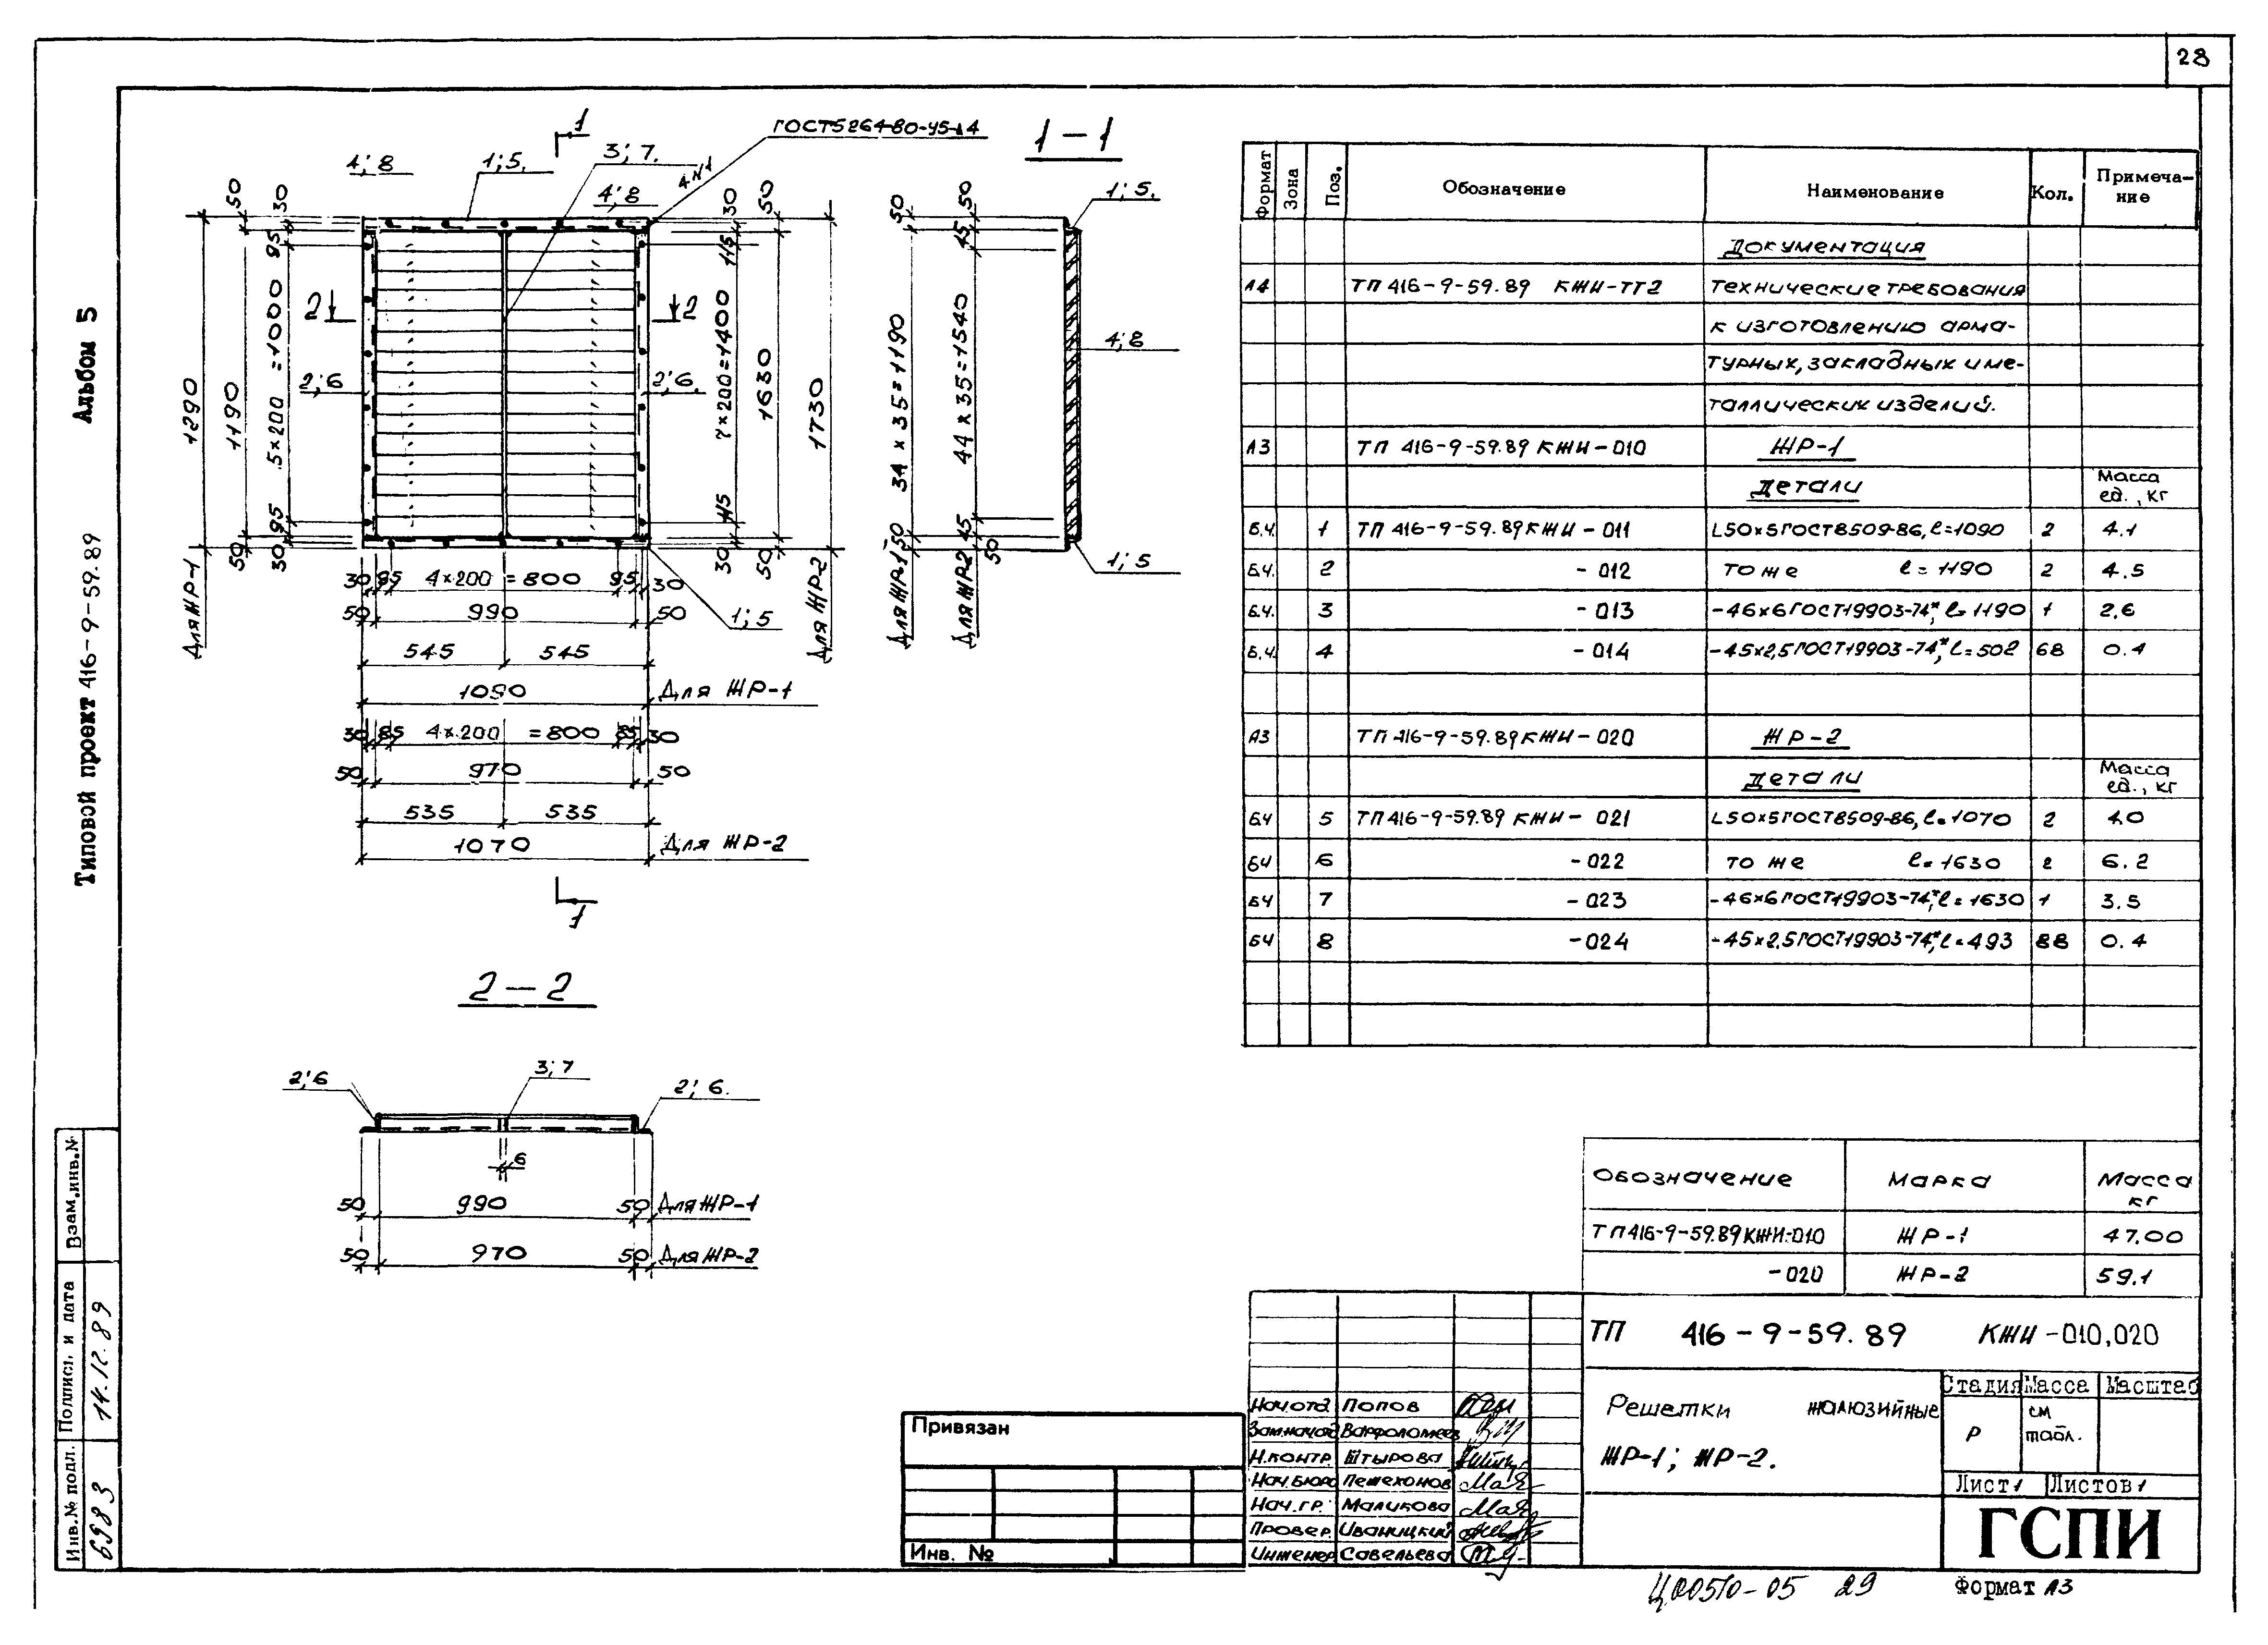 28
Альбом 5
Типовой проект 416-9-59.89
Взам.инв.№
Подпись и дата
14.12.89
Инв.№ подл.
6983
ГОСТ5264-80-У5-⊿4
1
4;8
1;5.
3;7.
4;8
50
30
30
50
95
115
2
2
2;6
2;6.
1290
1190
5×200 =1000
7×200=1400
1630
1730
95
115
50
30
30
50
Для ЖР-1
Для ЖР-2
1;5
30 95 4×200 =800 95 30
50 990 50
545 545
1090 Для ЖР-1
30 85 4×200 =800 85 30
50 970 50
535 535
1070 Для ЖР-2
1
1-1
50
50
45
1;5.
34×35=1190
44×35=1540
4;8
45
50
50
1;5
Для ЖР-1
Для ЖР-2
2-2
2;6
3;7
2;6.
6
50 990 50 Для ЖР-1
50 970 50 Для ЖР-2
Формат Зона Поз. Обозначение Наименование Кол. Примечание
Документация
А4 ТП 416-9-59.89 КЖИ-ТТ2 Технические требования
к изготовлению арма-
турных, закладных и ме-
таллических изделий.
А3 ТП 416-9-59.89 КЖИ-010 ЖР-1
Детали Масса ед., кг
Б.Ч. 1 ТП 416-9-59.89 КЖИ-011 L50×5 ГОСТ8509-86, l=1090 2 4.1
Б.Ч. 2 -012 то же l=1190 2 4.5
Б.Ч. 3 -013 -46×6 ГОСТ19903-74*, l=1190 1 2.6
Б.Ч. 4 -014 -45×2,5 ГОСТ19903-74*, l=502 68 0.4
А3 ТП 416-9-59.89 КЖИ-020 ЖР-2
Детали Масса ед., кг
БЧ 5 ТП 416-9-59.89 КЖИ-021 L50×5 ГОСТ8509-86, l=1070 2 4.0
БЧ 6 -022 то же l=1630 2 6.2
БЧ 7 -023 -46×6 ГОСТ19903-74*, l=1630 1 3.5
БЧ 8 -024 -45×2,5 ГОСТ19903-74*, l=493 88 0.4
Обозначение Марка Масса кг
ТП 416-9-59.89 КЖИ-010 ЖР-1 47.00
-020 ЖР-2 59.1
ТП 416-9-59.89 КЖИ-010,020
Нач.отд. Попов
Зам.нач.отд Варфоломеев
Н.контр. Штырова
Нач.бюро Пешехонов
Нач.гр. Маликова
Провер. Иваницкий
Инженер Савельева
Решетки жалюзийные
ЖР-1; ЖР-2.
Стадия Масса Масштаб
Р см табл.
Лист 1 Листов 1
ГСПИ
Привязан
Инв. №
Ц00510-05 29
Формат А3